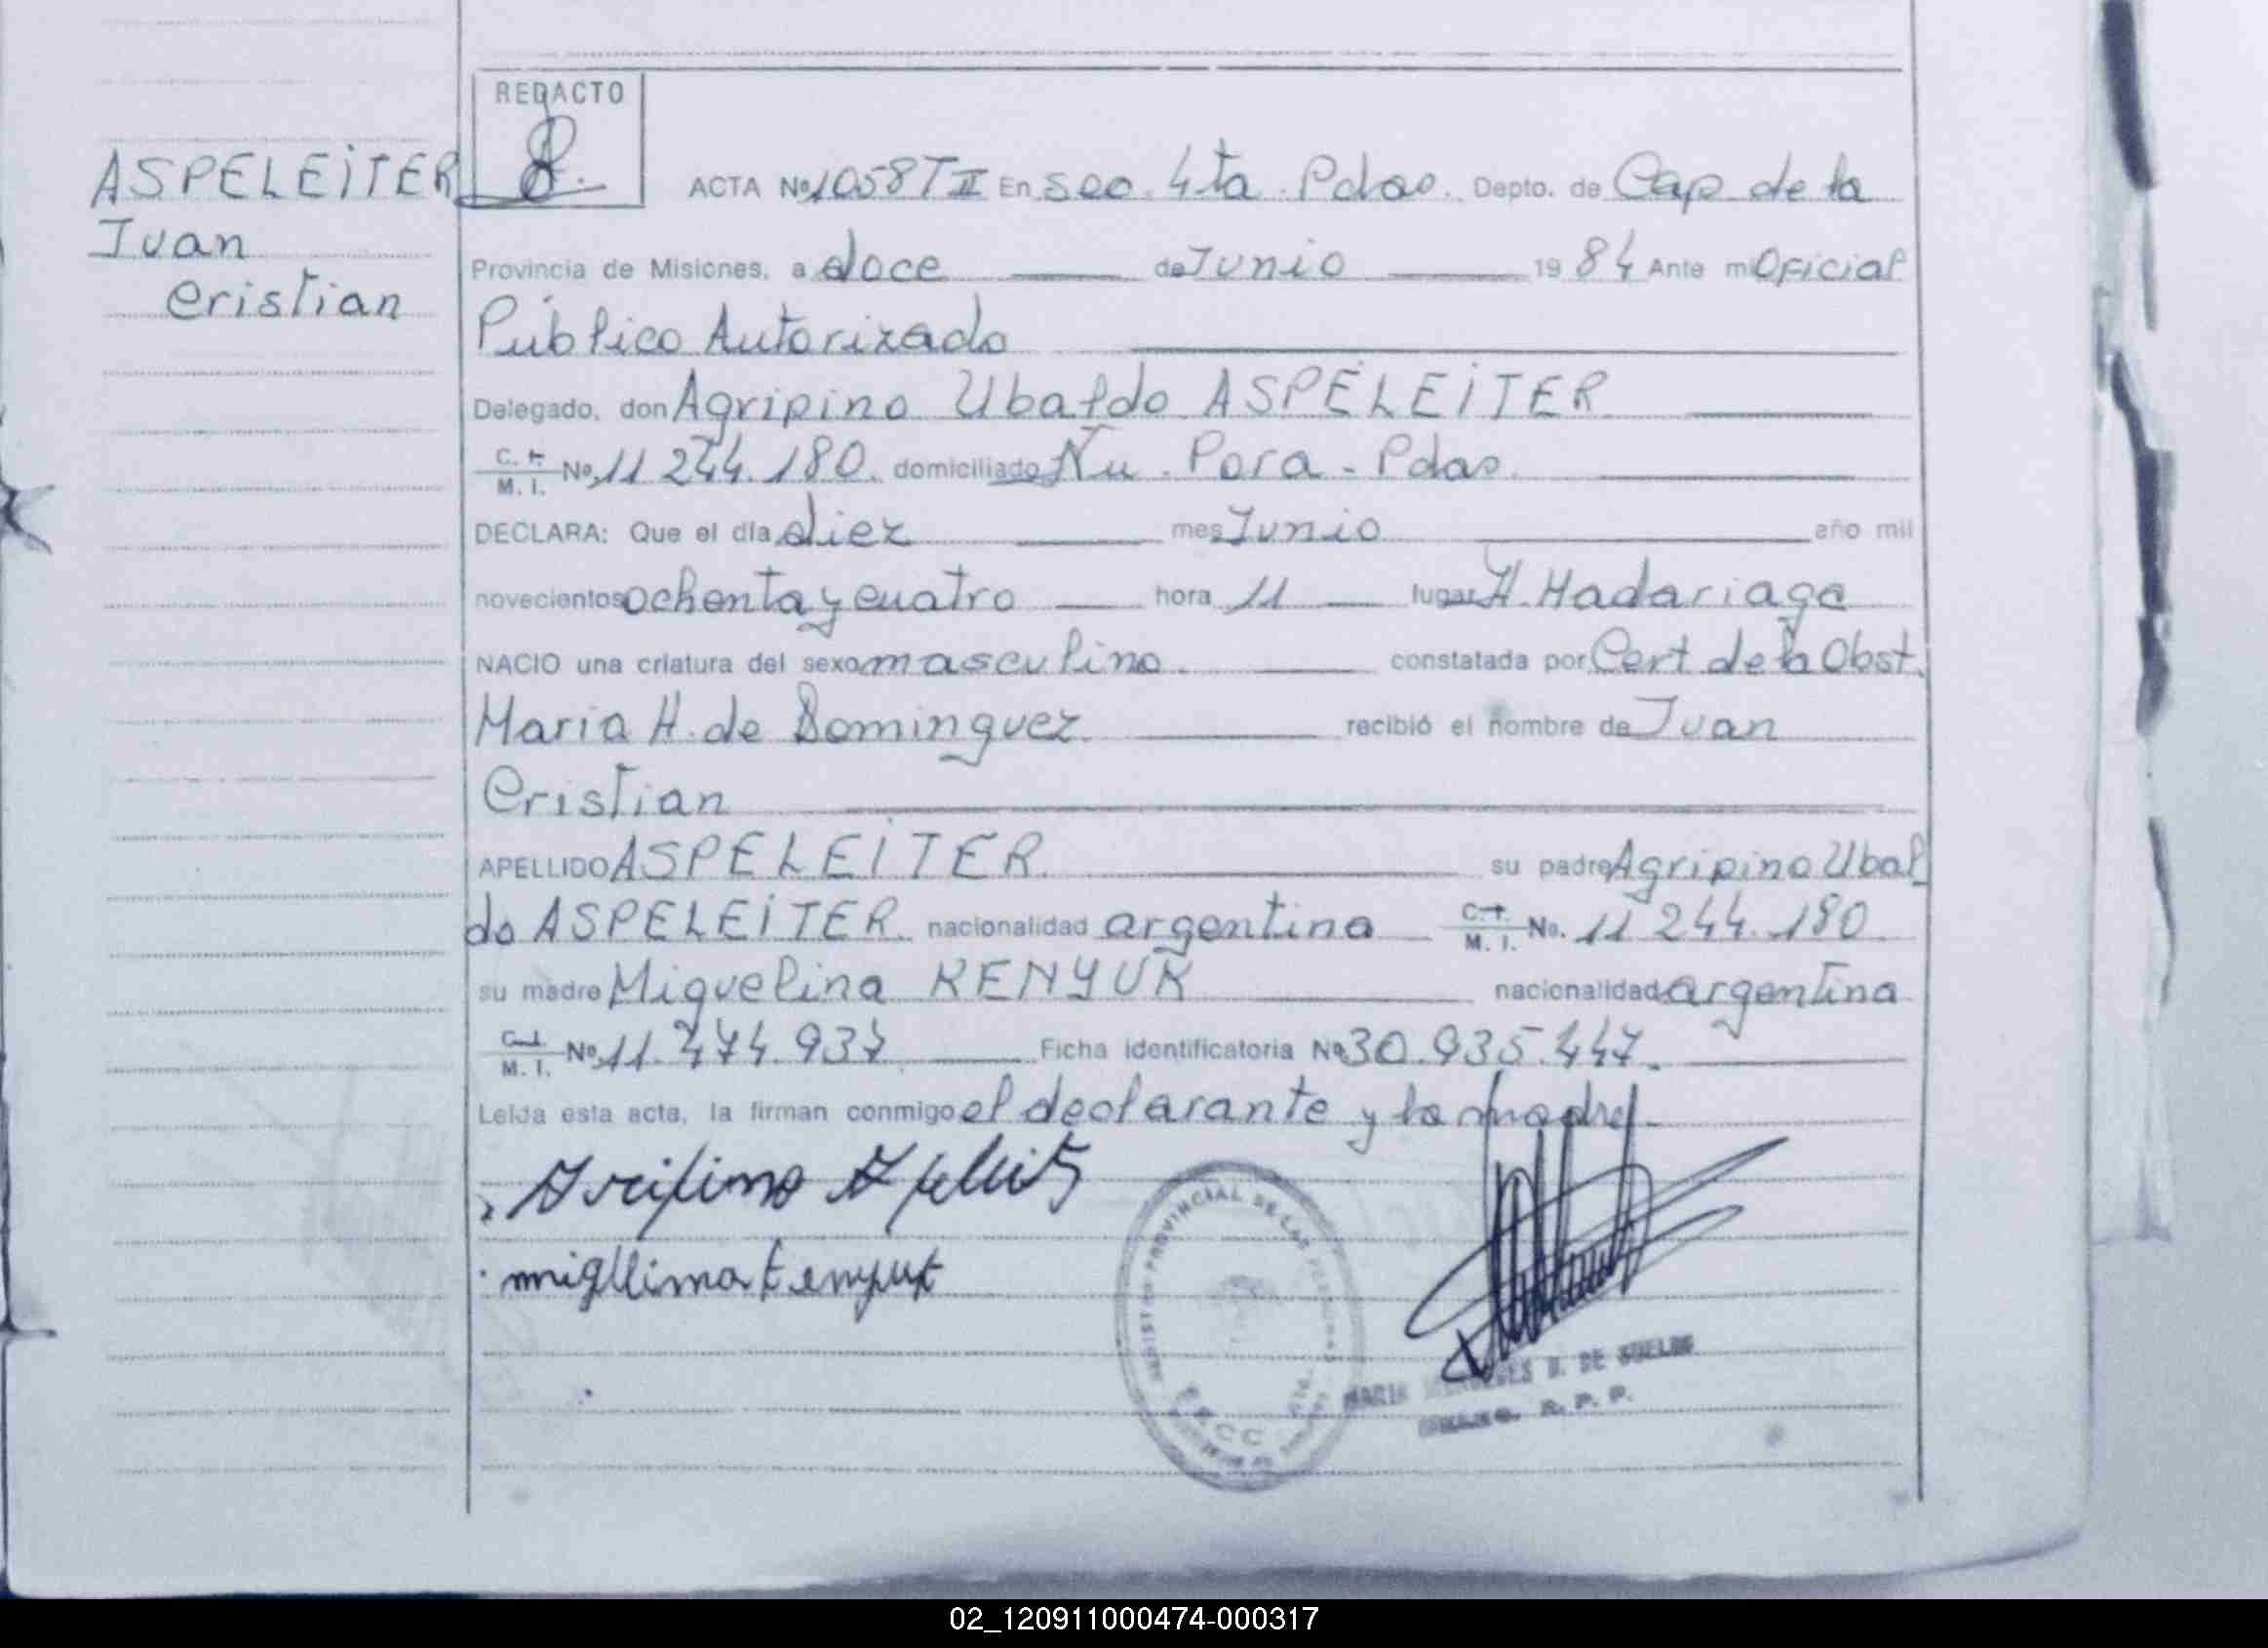 REDACTO
ASPELEITER
Juan
Cristian
ACTA Nº 1058 T II En sec. 4ta. Pdas. Depto. de Cap. de la
Provincia de Misiones, a doce de Junio 1984 Ante mi Oficial
Público Autorizado
Delegado, don Agripino Ubaldo ASPELEITER
C. I. M. I. Nº 11.244.180. domiciliado Ñu. Pora - Pdas.
DECLARA: Que el día diez mes Junio año mil
novecientos ochenta y cuatro hora 11 lugar H. Madariaga
NACIO una criatura del sexo masculino. constatada por Cert. de la Obst.
Maria H. de Dominguez recibió el nombre de Juan
Cristian
APELLIDO ASPELEITER su padre Agripino Ubal
do ASPELEITER. nacionalidad argentina C. I. M. I. No. 11.244.180
su madre Miguelina KENYUK nacionalidad argentina
C. I. M. I. Nº 11.474.937 Ficha identificatoria Nº 30.935.447.
Leída esta acta, la firman conmigo el declarante y la madre.
REGISTRO PROVINCIAL DE LAS PERSONAS
MARIA D. DE SUELDO
R. P. P.
02_120911000474-000317